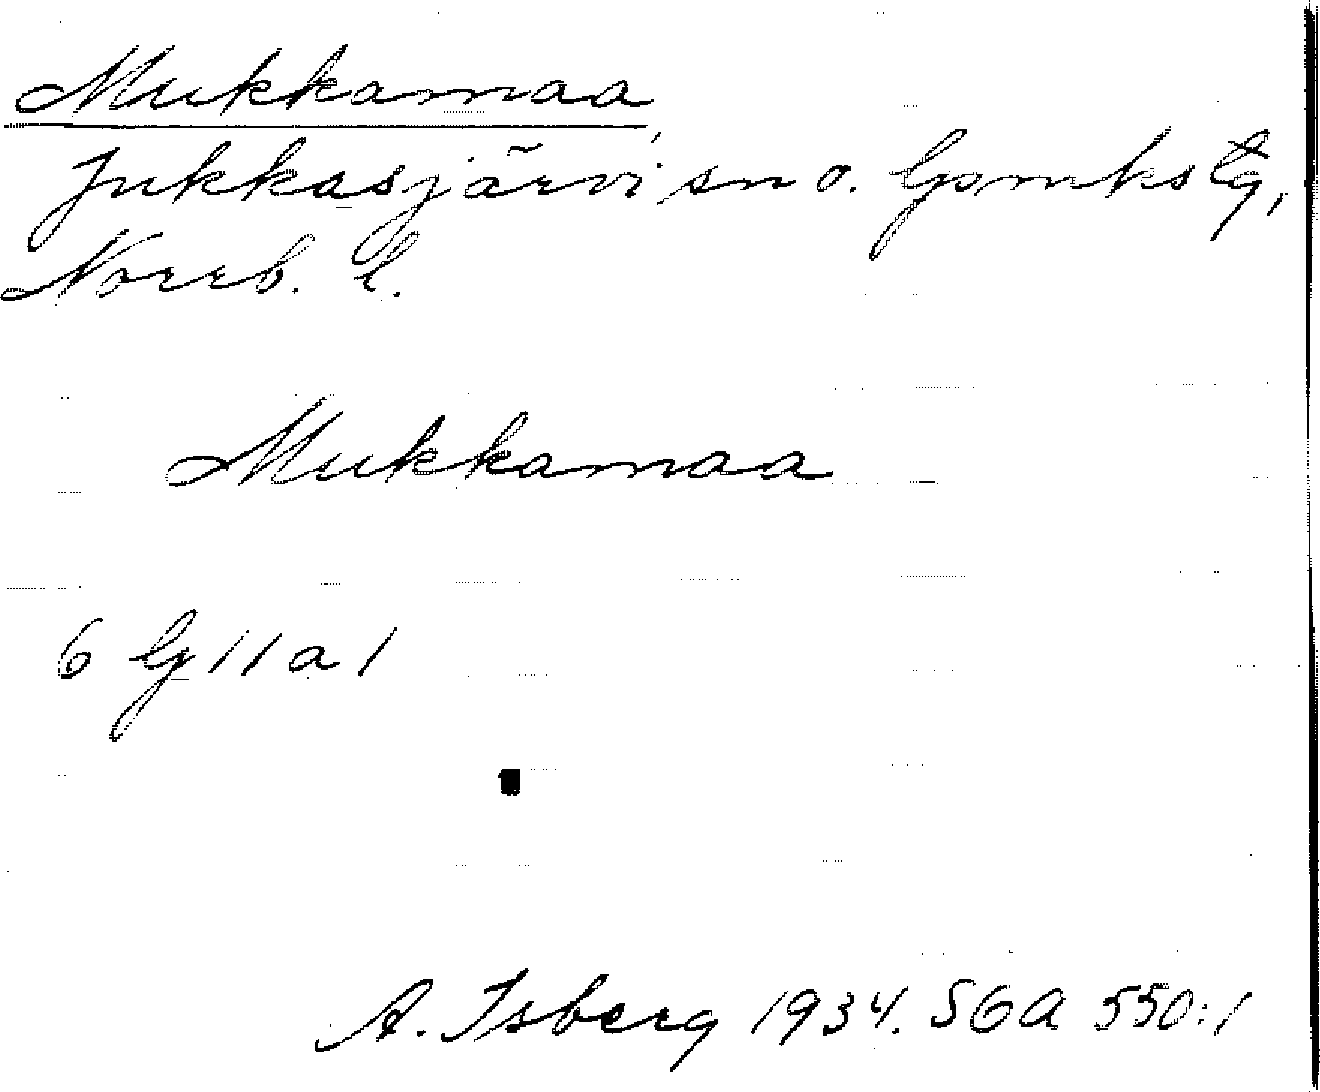 Mukkamaa
Jukkasjärvi sn o. lpmks tg,
Norrb. l.
Mukkamaa
6 lg 11 a 1
A. Isberg 1934. SGA 550:1